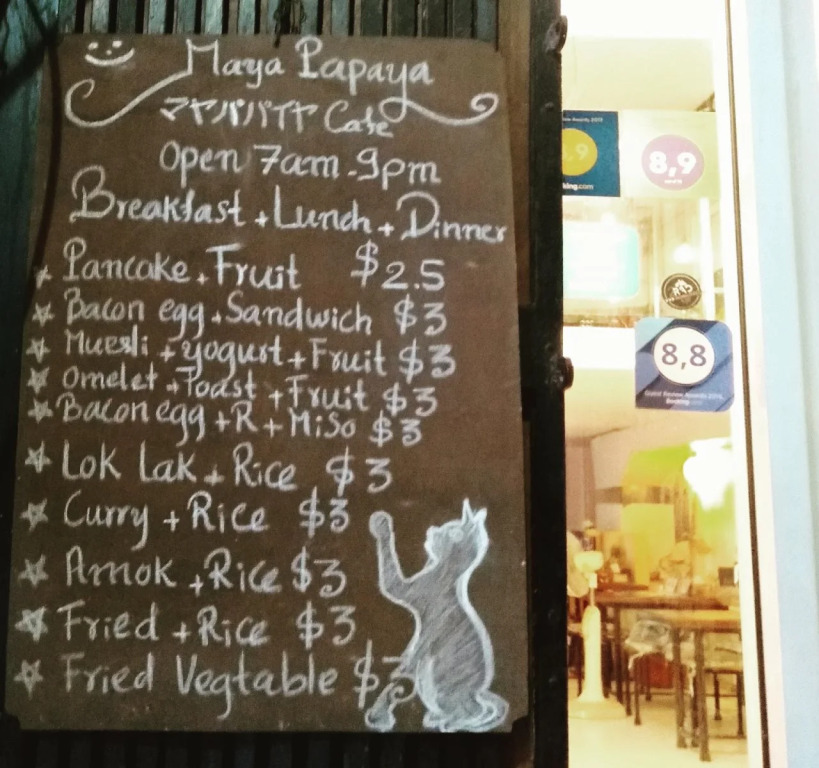 Maya Papaya
マヤパパイヤ Cafe
Open 7am-9pm
Breakfast + Lunch + Dinner
Pancake + Fruit $2.5
Bacon egg + Sandwich $3
Muesli + yogurt + Fruit $3
Omelet + Toast + Fruit $3
Bacon egg + R + Miso $3
Lok Lak + Rice $3
Curry + Rice $3
Amok + Rice $3
Fried + Rice $3
Fried Vegtable $3
8,9
8,9
king.com
8,8
Guest Review Awards 2014
Booking.com